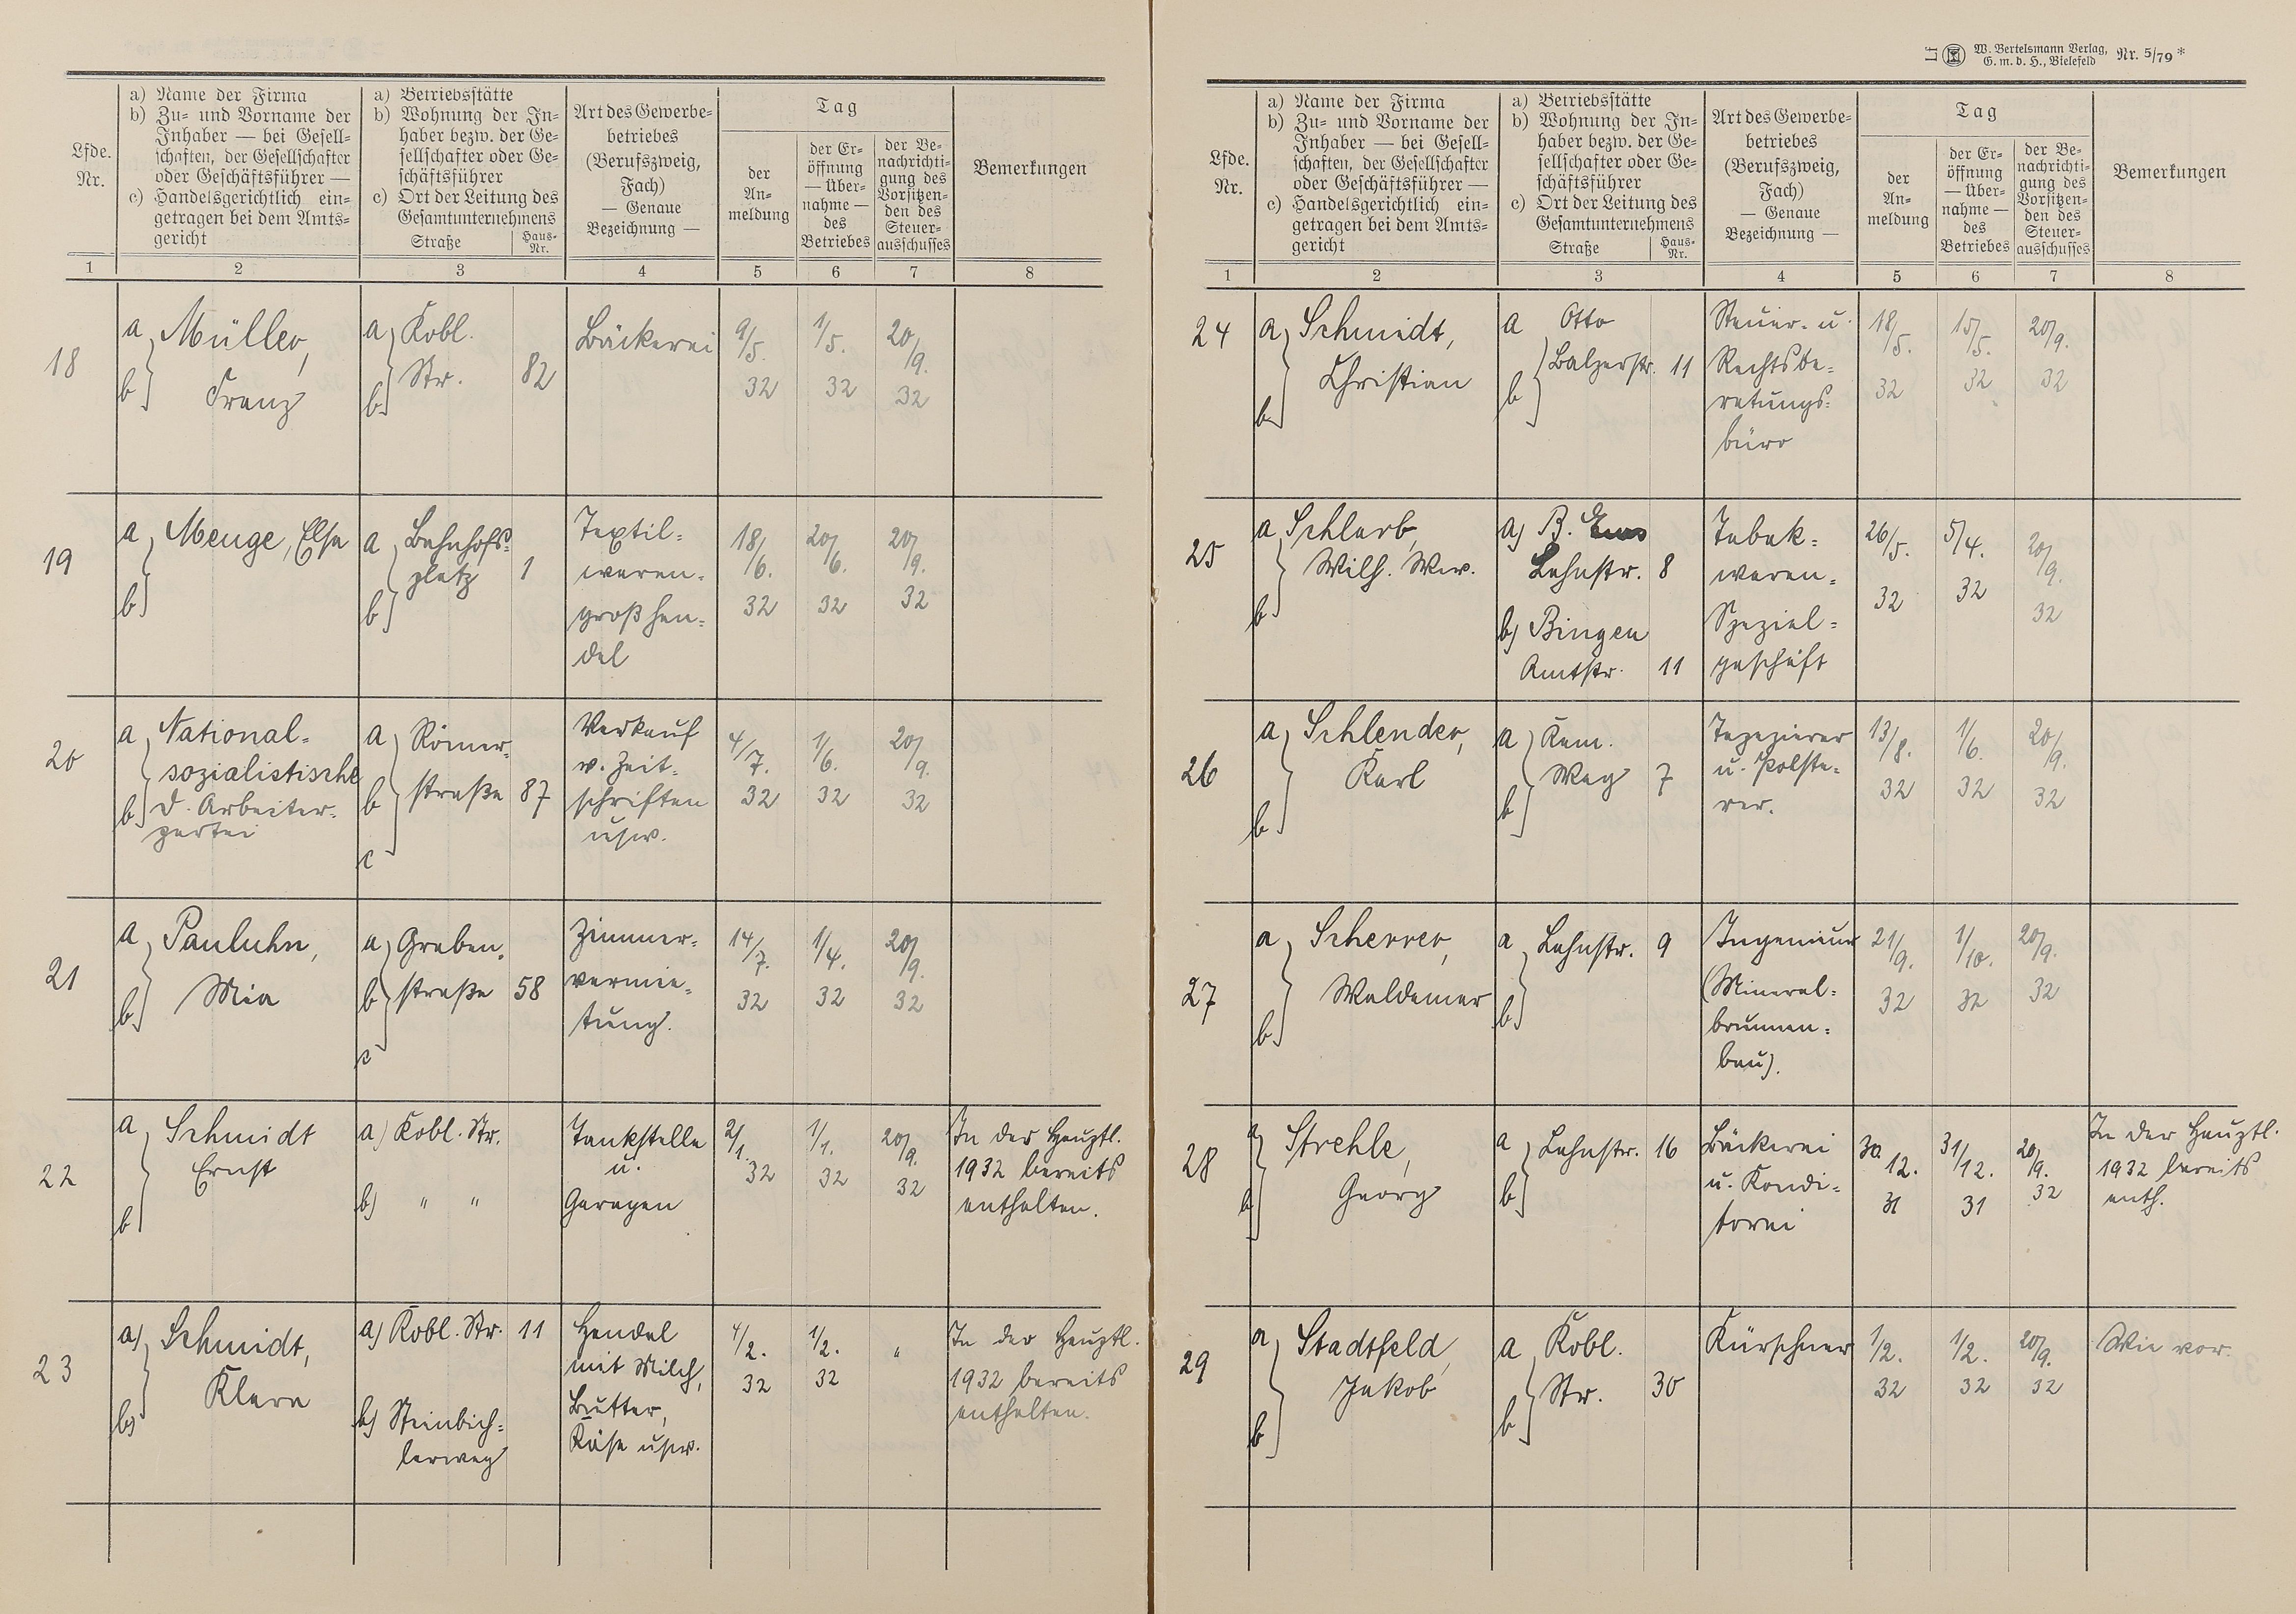 Lfde. Nr.
a) Name der Firma
b) Zu= und Vorname der
Inhaber — bei Gesell=
schaften, der Gesellschafter
oder Geschäftsführer —
c) Handelsgerichtlich ein=
getragen bei dem Amts=
gericht
a) Betriebsstätte
b) Wohnung der In=
haber bezw. der Ge=
sellschafter oder Ge=
schäftsführer
c) Ort der Leitung des
Gesamtunternehmens
Straße
Haus-Nr.
Art des Gewerbe=
betriebes
(Berufszweig,
Fach)
— Genaue
Bezeichnung —
Tag
der
An=
meldung
der Er=
öffnung
— Über=
nahme —
des
Betriebes
der Be=
nachrichti=
gung des
Vorsitzen=
den des
Steuer=
ausschusses
Bemerkungen
1 2 3 4 5 6 7 8
18
a Müller,
b) Franz
a) Kobl.
b) Str. 82
Bäckerei
9/5. 32
1/5. 32
20/9. 32
19
a Menge, Else
b)
a Bahnhofs=
b) platz 1
Textil=
waren=
großhan=
del
18/6. 32
20/6. 32
20/9. 32
20
a National=
sozialistische
b) D. Arbeiter=
partei
a Römer=
b straße 87
c
Verkauf
v. Zeit=
schriften
usw.
4/7. 32
1/6. 32
20/9. 32
21
a Pauluhn,
b) Mia
a) Graben=
b) straße 58
c
Zimmer=
vermie=
tung.
14/7. 32
1/4. 32
20/9. 32
22
a Schmidt
Ernst
b
a) Kobl. Str.
b) " "
Tankstelle
u.
Garagen
2/1. 32
1/1. 32
20/9. 32
In der Hauptl.
1932 bereits
enthalten.
23
a) Schmidt,
b) Klara
a) Kobl. Str. 11
b) Steinbich=
lerweg
Handel
mit Milch,
Butter,
Käse usw.
4/2. 32
1/2. 32
"
In der Hauptl.
1932 bereits
enthalten.
W. Bertelsmann Verlag,
G. m. d. H., Bielefeld
Nr. 5/79 *
Lfde. Nr.
a) Name der Firma
b) Zu= und Vorname der
Inhaber — bei Gesell=
schaften, der Gesellschafter
oder Geschäftsführer —
c) Handelsgerichtlich ein=
getragen bei dem Amts=
gericht
a) Betriebsstätte
b) Wohnung der In=
haber bezw. der Ge=
sellschafter oder Ge=
schäftsführer
c) Ort der Leitung des
Gesamtunternehmens
Straße
Haus-Nr.
Art des Gewerbe=
betriebes
(Berufszweig,
Fach)
— Genaue
Bezeichnung —
Tag
der
An=
meldung
der Er=
öffnung
— Über=
nahme —
des
Betriebes
der Be=
nachrichti=
gung des
Vorsitzen=
den des
Steuer=
ausschusses
Bemerkungen
1 2 3 4 5 6 7 8
24
a) Schmidt,
Christian
b
a Otto
b Balzerstr. 11
Steuer- u.
Rechtsbe=
ratungs=
büro
18/5. 32
15/5. 32
20/9. 32
25
a Schlarb,
Wilh. Ww.
b
a) B. Ems
Lahnstr. 8
b) Bingen
Amtstr. 11
Tabak=
waren=
Spezial=
geschäft
26/5. 32
5/4. 32
20/9. 32
26
a Schlender,
Karl
b
a Kem.
b Weg 7
Tapezierer
u. Polste=
rer.
13/8. 32
1/6. 32
20/9. 32
27
a Scherrer,
Waldemar
b
a Lahnstr. 9
b
Ingenieur
(Mineral=
brunnen=
bau).
21/9. 32
1/10. 32
20/9. 32
28
a Strehle,
b Georg
a Lahnstr. 16
b
Bäckerei
u. Kondi=
torei
30.12. 31
31/12. 31
20/9. 32
In der Hauptl.
1932 bereits
enth.
29
a Stadtfeld,
Jakob
b
a Kobl.
b Str. 30
Kürschner
1/2. 32
1/2. 32
20/9. 32
Wie vor.